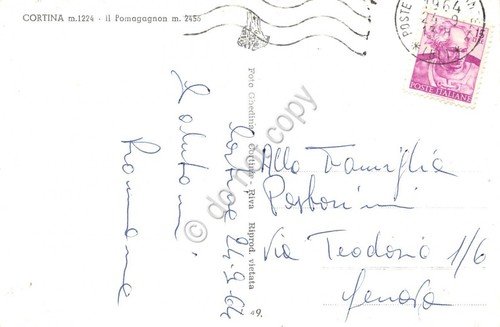 CORTINA m.1224 - il Pomagagnon m. 2456
POSTE
1964
POSTE ITALIANE
Foto Ghedina - Cortina. Riva Riprod. vietata
49.
24.9.64
Saluti
Alla Famiglia
Via Teodosio 1/6
Genova
do not copy